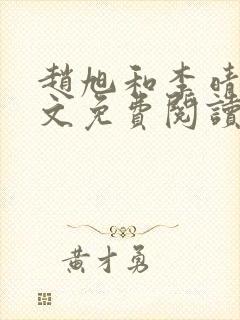 趙旭和李晴
文免費閱讀
黃才勇